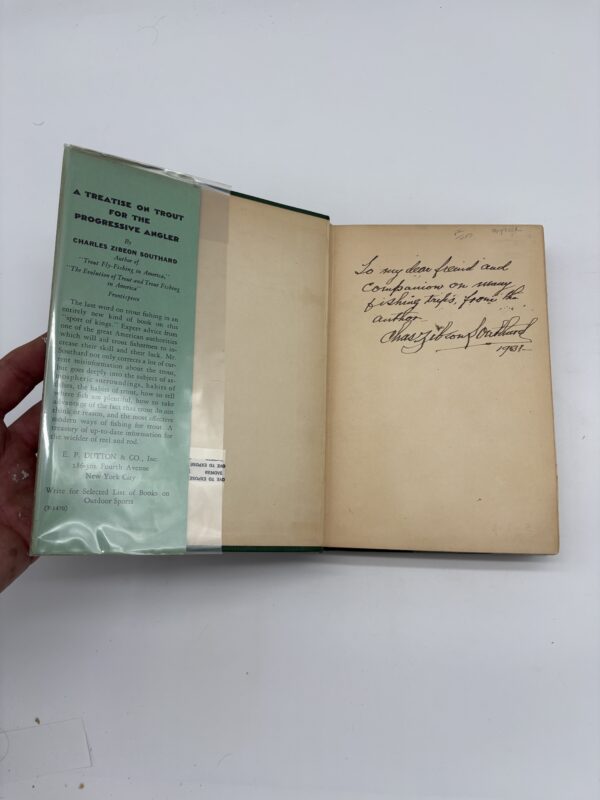 A TREATISE ON TROUT
FOR THE
PROGRESSIVE ANGLER
By
CHARLES ZIBEON SOUTHARD
Author of
"Trout Fly-Fishing in America,"
"The Evolution of Trout and Trout Fishing
in America"
Frontispiece
The last word on trout fishing is an
entirely new kind of book on this
"sport of kings." Expert advice from
one of the great American authorities
which will aid trout fishermen to in-
crease their skill and their luck. Mr.
Southard not only corrects a lot of cur-
rent misinformation about the trout,
but goes deeply into the subject of at-
mospheric surroundings, habits of
the habits of trout, how to tell
where fish are plentiful, how to take
advantage of the fact that trout do not
think or reason, and the most effective
modern ways of fishing for trout. A
treasury of up-to-date information for
the wielder of reel and rod.
E. P. DUTTON & CO., Inc.
286-302 Fourth Avenue
New York City
Write for Selected List of Books on
Outdoor Sports
To my dear friend and
companion on many
fishing trips, from the
author
Chas Zibeon Southard
1931